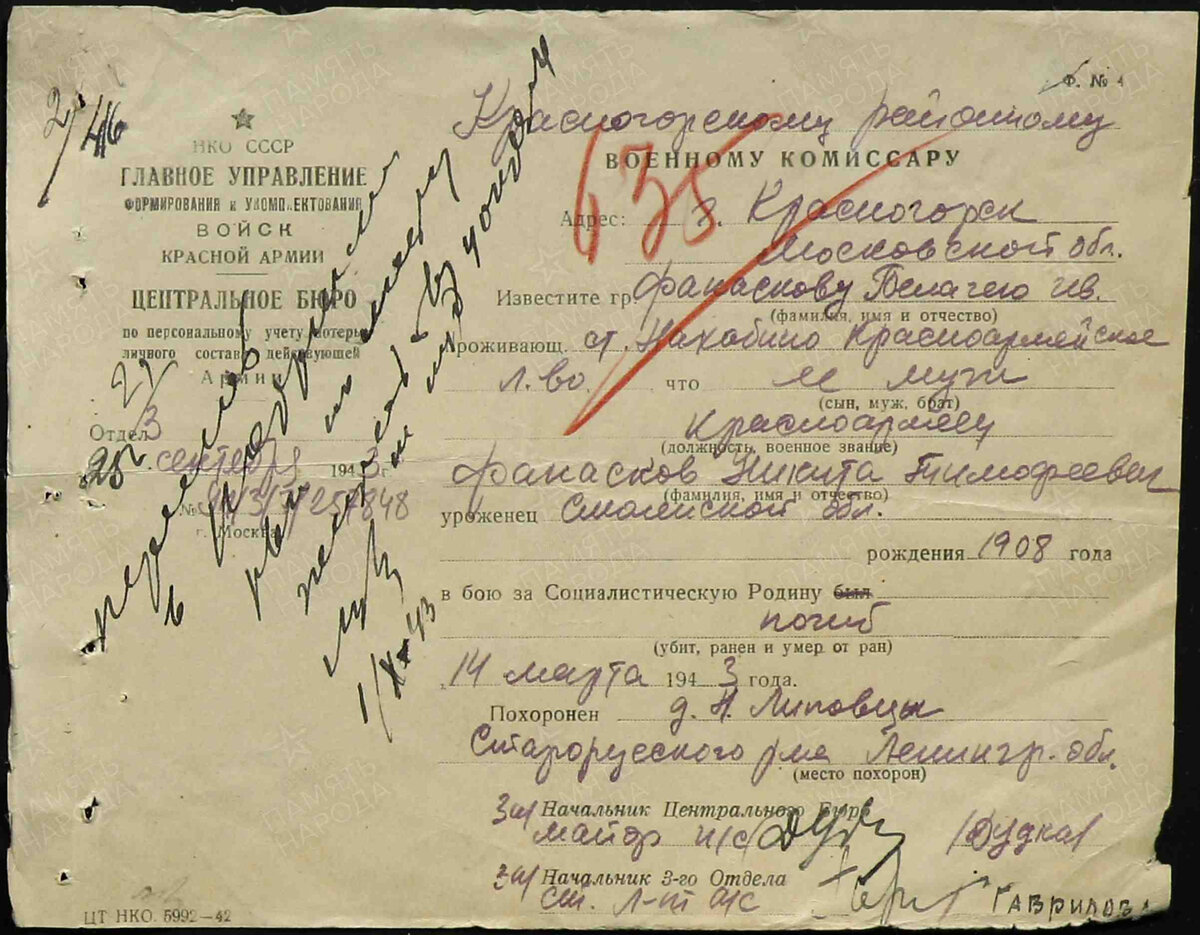 2/46
НКО СССР
ГЛАВНОЕ УПРАВЛЕНИЕ
ФОРМИРОВАНИЯ и УКОМПЛЕКТОВАНИЯ
ВОЙСК
КРАСНОЙ АРМИИ
ЦЕНТРАЛЬНОЕ БЮРО
по персональному учету потерь
личного состава действующей
Армии
Отдел 3
25 сентября 1943 г.
№ 9/13/7/257848
г. Москва
1/X-43
635
Ф. № 4
Красногорскому районному
ВОЕННОМУ КОМИССАРУ
Адрес: г. Красногорск
Московской обл.
Известите гр. Фанаскову Пелагею Ив.
(фамилия, имя и отчество)
проживающ. ст. Нахабино Красноармейское
л-во что ее муж
(сын, муж, брат)
Красноармеец
(должность, военное звание)
Фанасков Никита Тимофеевич
(фамилия, имя и отчество)
уроженец Смоленской обл.
рождения 1908 года
в бою за Социалистическую Родину был
погиб
(убит, ранен и умер от ран)
„14 марта 1943 года.
Похоронен д. Н. Липовцы
Старорусского р-на Ленингр. обл.
(место похорон)
Зам Начальник Центрального Бюро
майор и/с /Дудка/
Зам Начальник 3-го Отдела
Ст. л-т а/с Гаврилова
ЦТ НКО. 5992—42
ПАМЯТЬ НАРОДА